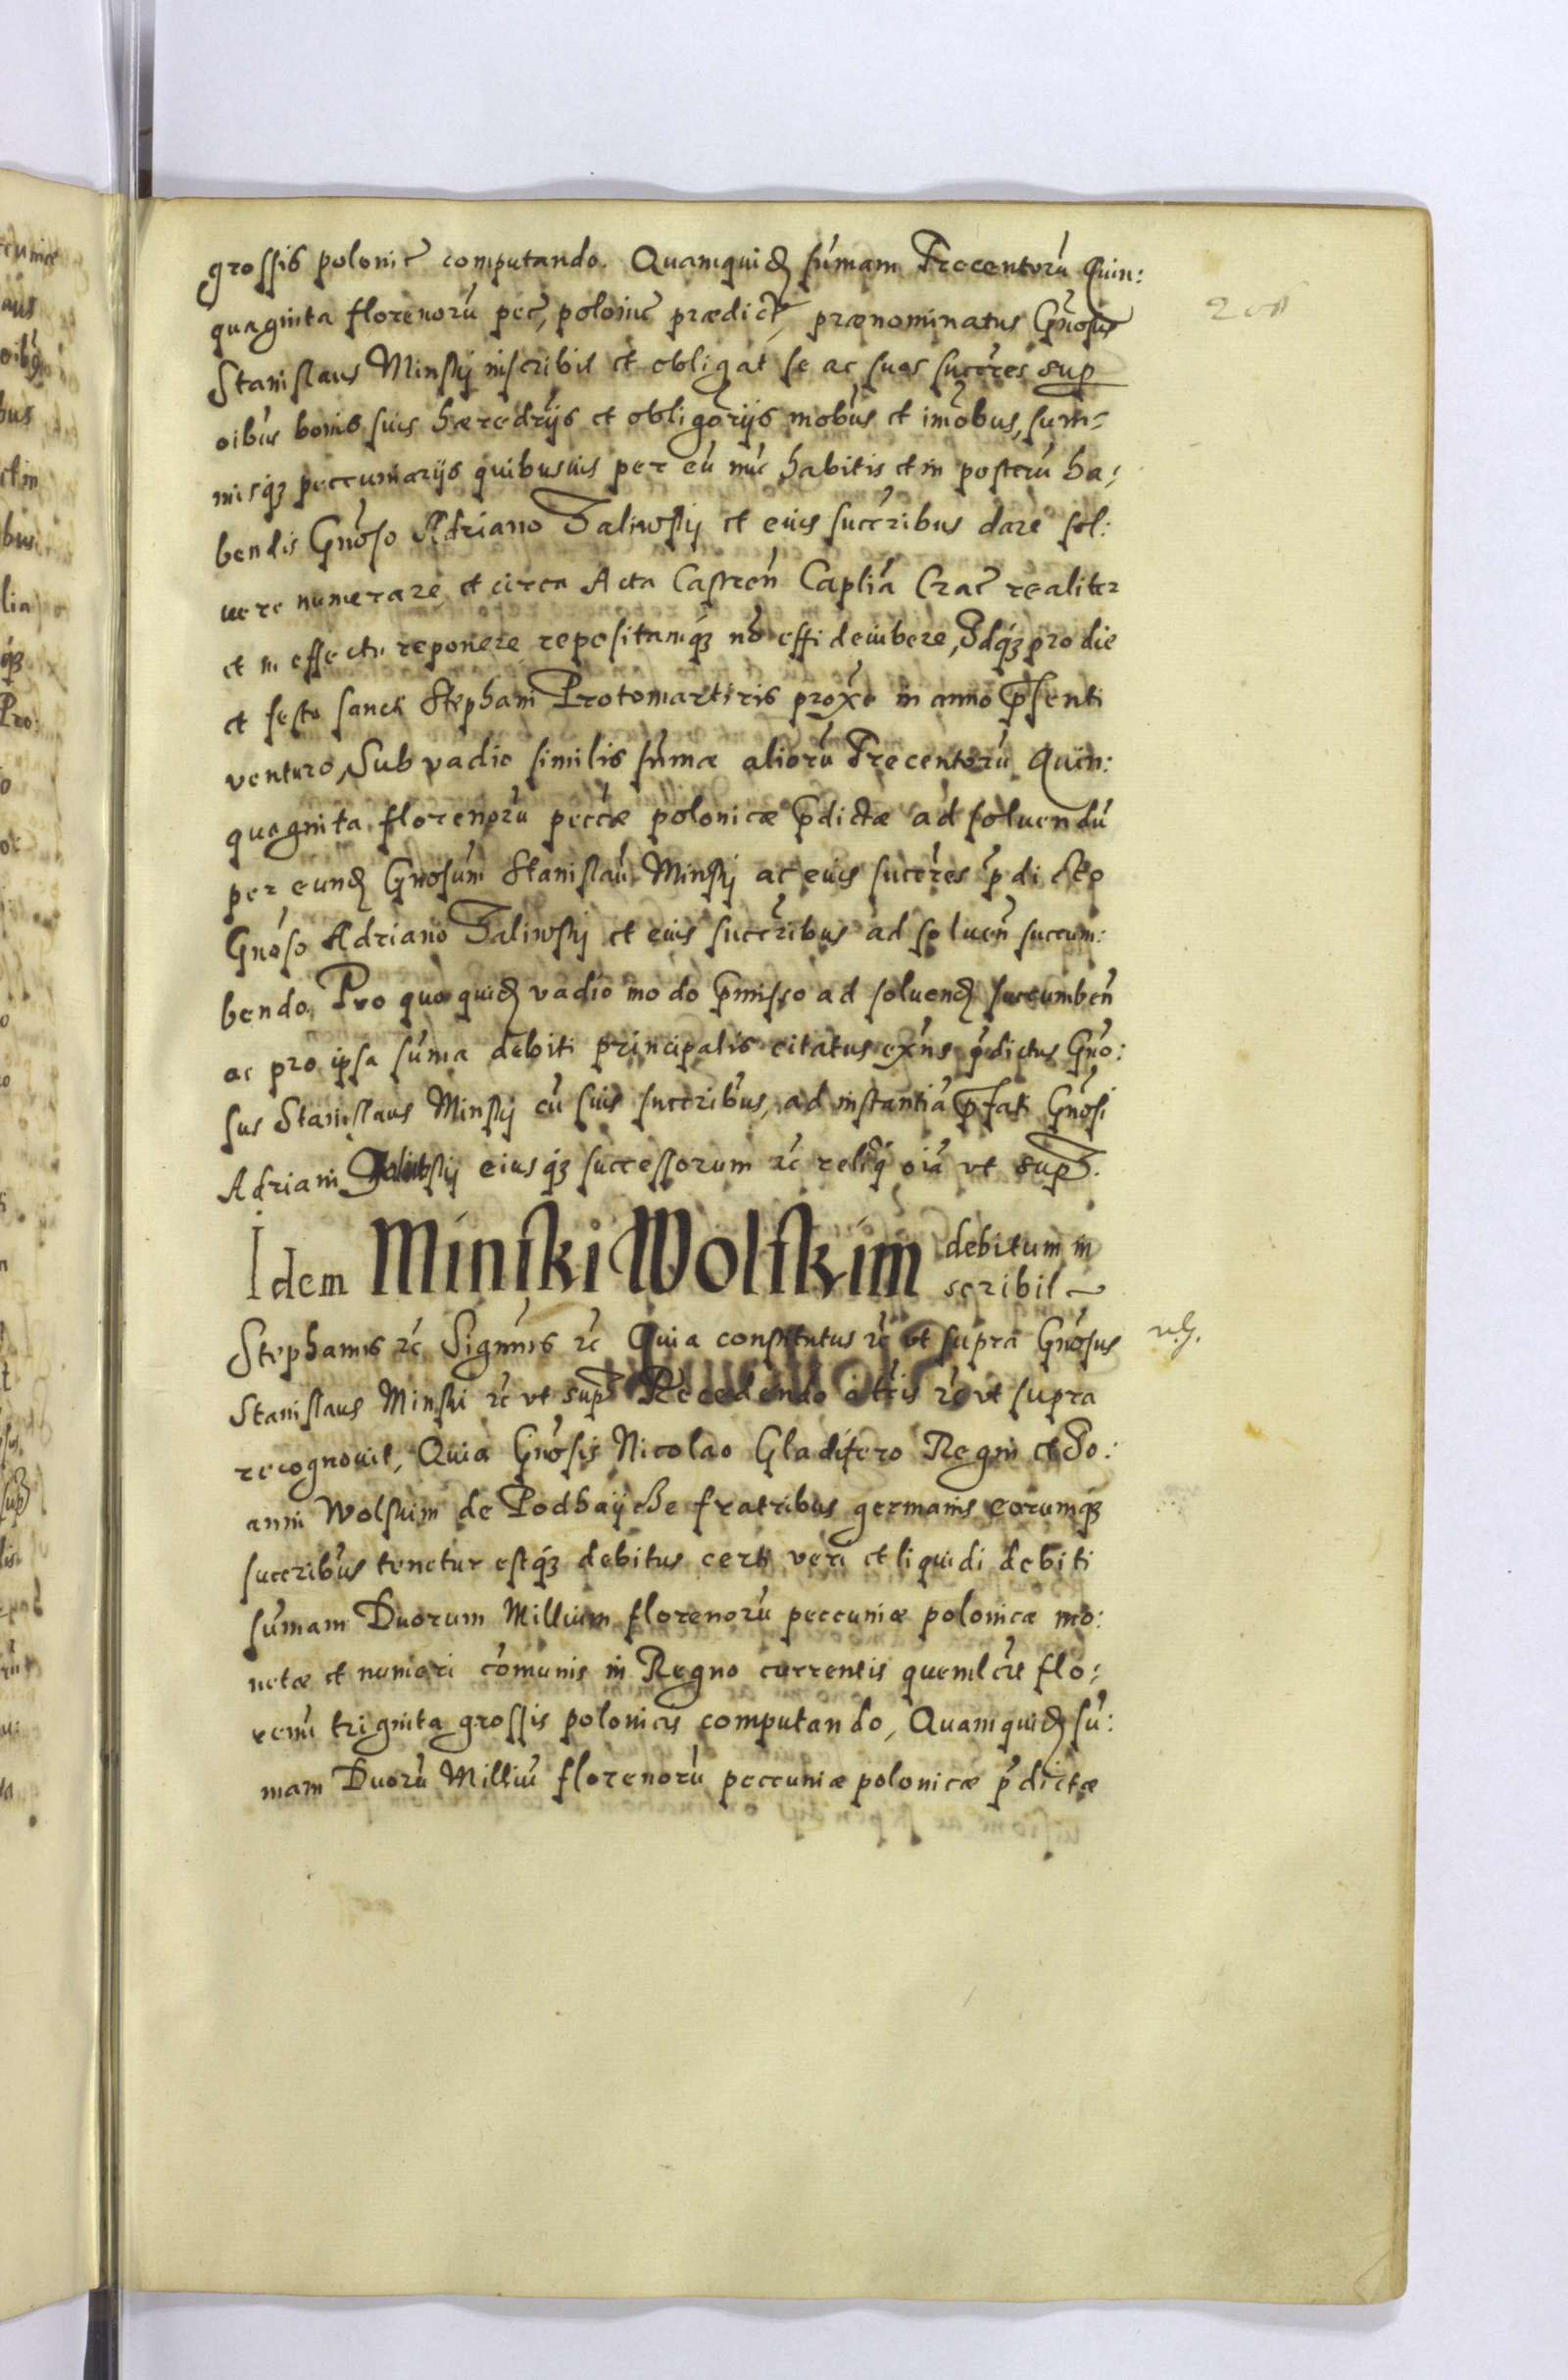 grossis polonic computando. Quamquid sumam Trecentoru Quin:
quaginta florenoru pec, polonic praedict, praenominatus Gnosus
Stanislaus Minskij inscribit et obligat se ac suos succres sup
oibus bonis suis haeredrijs et obligorijs mobus et imobus, sum=
misq3 peccuniarijs quibusuis per eu nuc habitis et in posteru ha:
bendis Gnoso Adriano Zaliwskij et eius succribus dare sol:
uere numerare, et circa Acta Castren Caplia Crac realiter
et in effectu reponere repositamq3 no effi deiubere, Idq3 pro die
et festo sancti Stephani Protomartiris proxe in anno psenti
venturo, Sub vadio similis sumae alioru Trecentoru Quin:
quaginta florenoru peccae polonicae pdictae ad soluendu
per eund Gnosum Stanislau Minskj ac eius succres pdicto
Gnoso Adriano Zaliwskj et eius succribus ad soluen succum:
bendo, Pro quo quid vadio modo pmisso ad soluend succumben
ac pro ipsa suma debiti principalis citatus exns pdictus Gno:
sus Stanislaus Minskij cu suis succribus, ad instantia pfati Gnosi
Adriani Zaliwskij eiusq3 successorum rc reliq oia vt sup.
Idem Minski Wolskim debitum in
scribit
Stephanus rc Signmus rc Quia constitutus rc vt supra Gnosus
Stanislaus Minski rc vt sup Recedendo a tris rc vt supra
recognouit, Quia Gnosis Nicolao Gladifero Regni et Jo:
anni Wolskim de Podhaÿche fratribus germanis eorumq3
succribus tenetur estq3 debitus certi veri et liquidi debiti
sumam Duorum Millium florenoru peccuniae polonicae mo:
netae et numeri comunis in Regno currentis quemlibt flo:
renu triginta grossis polonicis computando, Quamquid su:
mam Duoru Milliu florenoru peccuniae polonicae pdictae